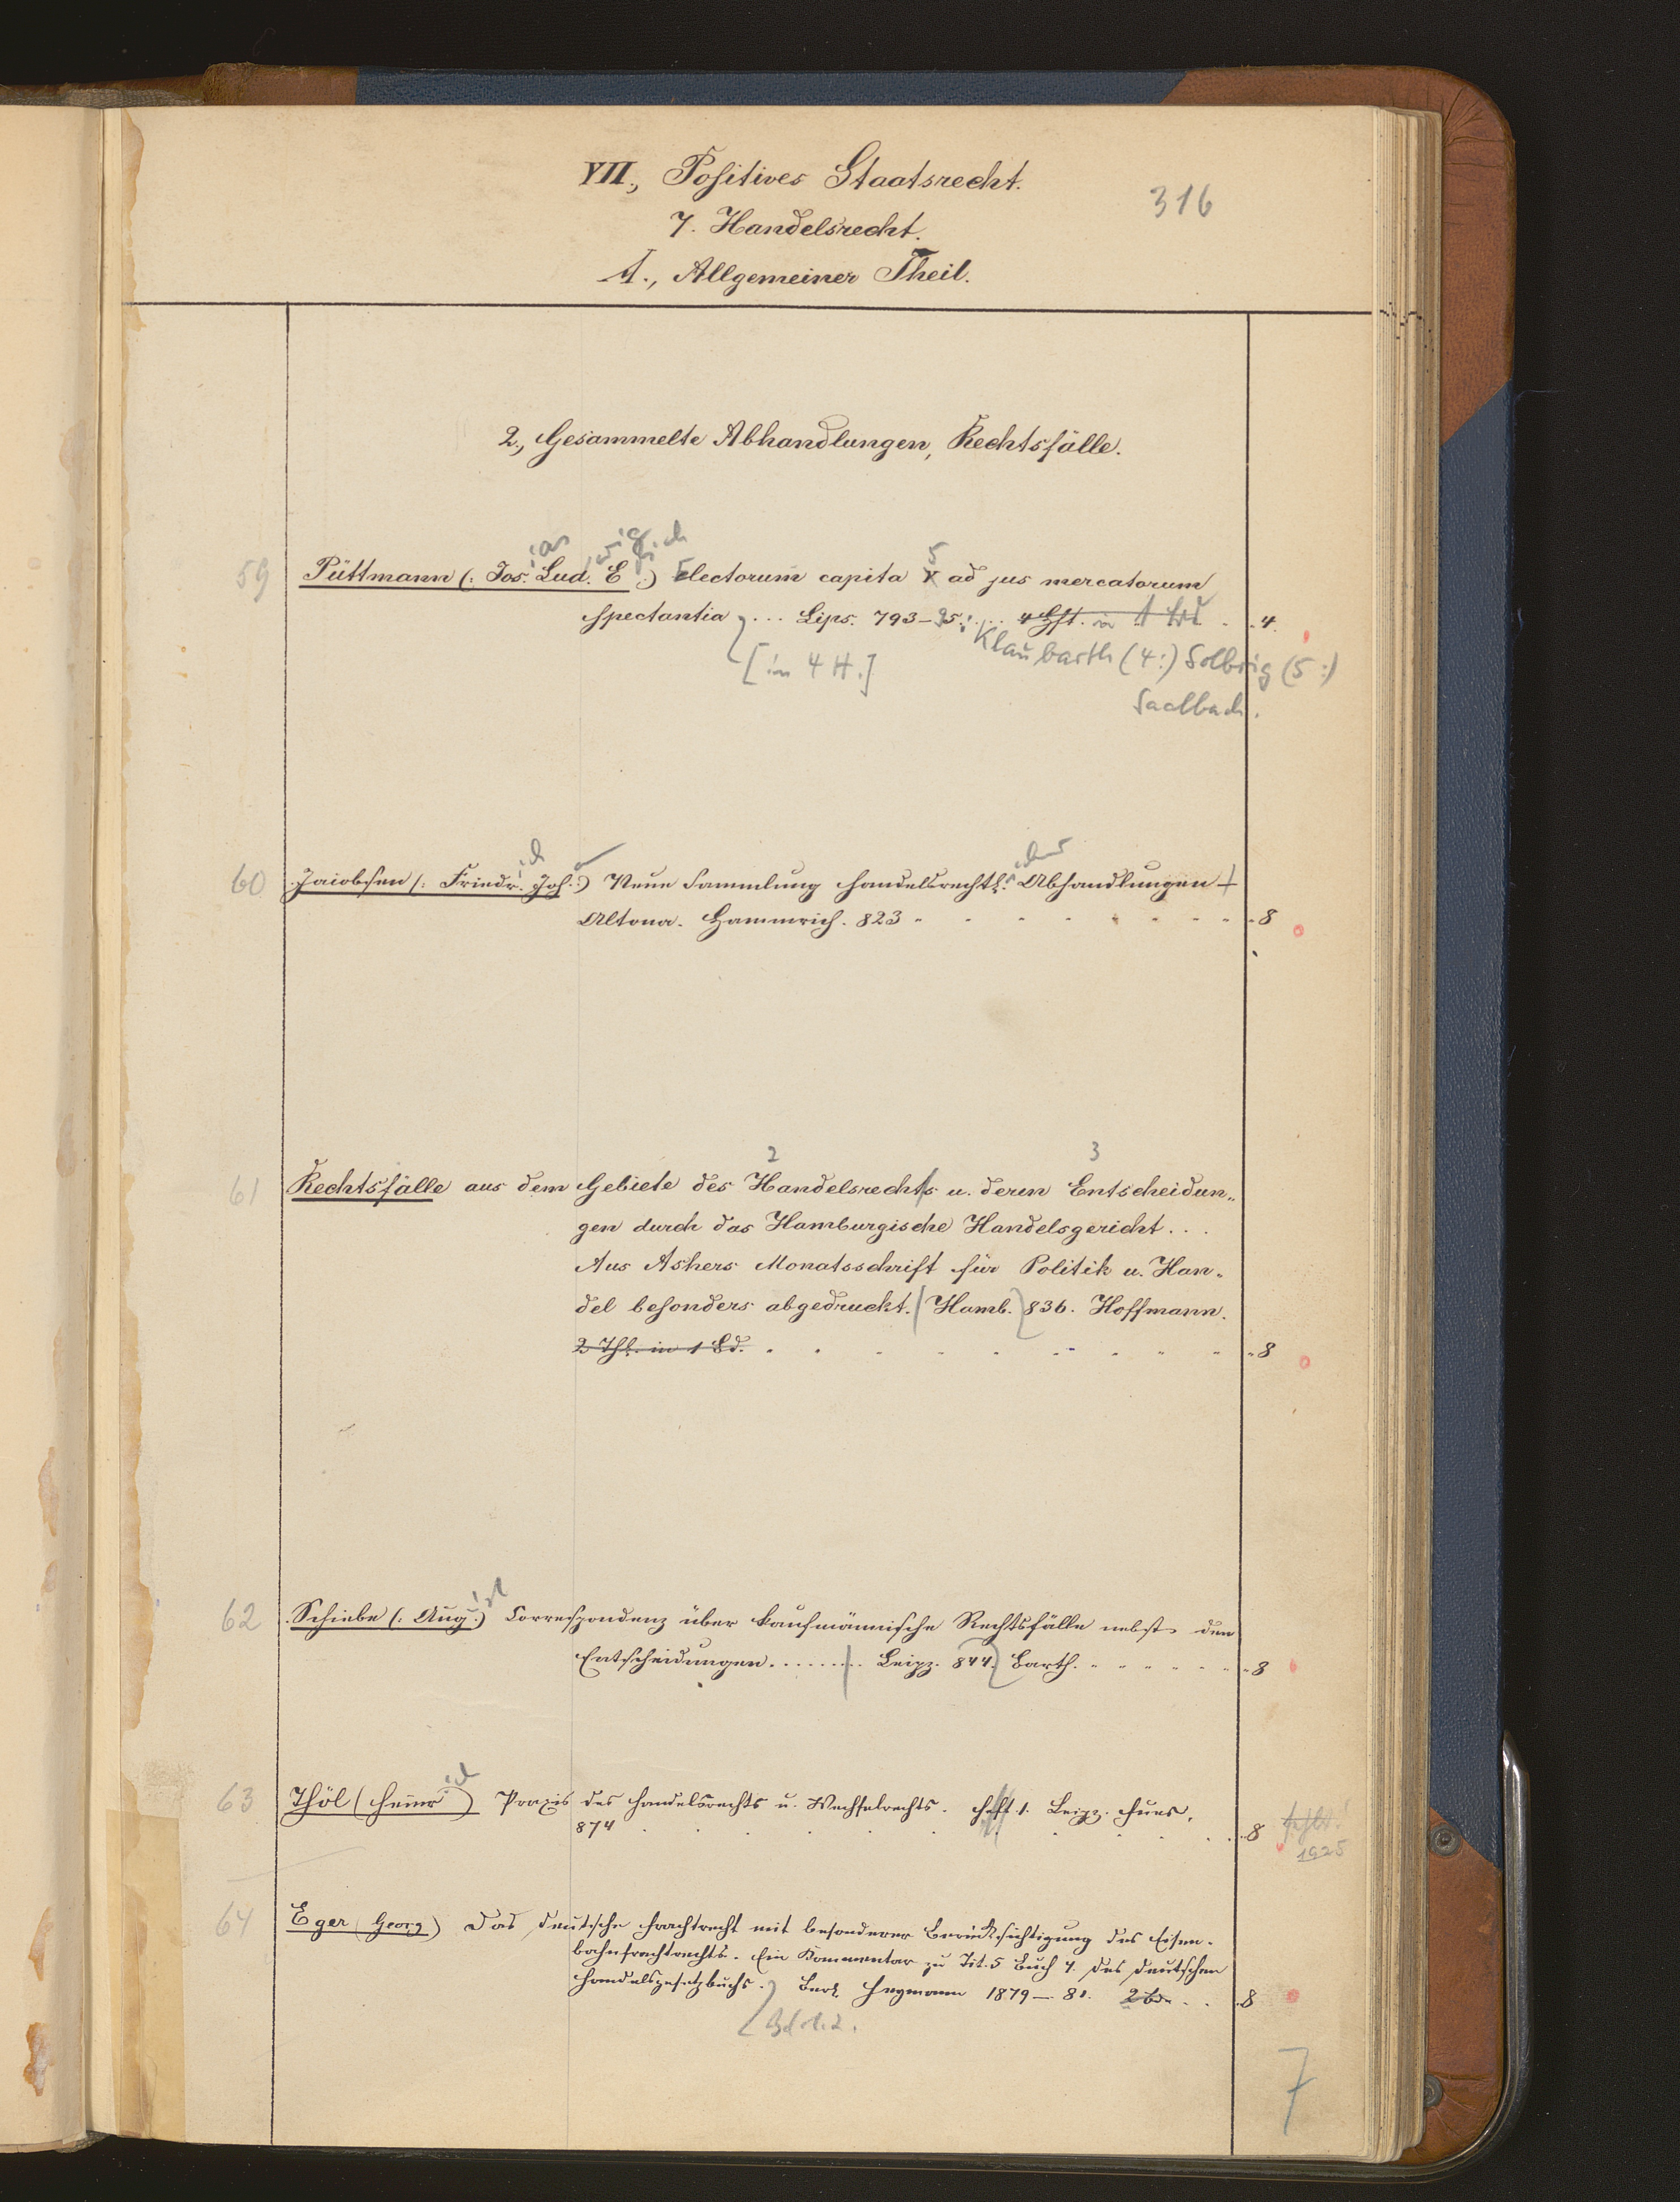 VII., Positives Staatsrecht.
316
7. Handelsrecht.
A., Allgemeiner Theil.
2., Gesammelte Abhandlungen, Rechtsfälle.
ias wig rich
59 Püttmann (: Jos. Lud. E :) Electorum capita V 5 ad jus mercatorum
spectantia ... Lips. 793–95. ... 4 Hft. in 1 Bd . . 4.
Klaubarth (4:) Solbrig (5:)
[in 4 H.]
Saalbach.
60 Jacobsen (: Friedr. Joh. :) Neue Sammlung handelsrechtl. Abhandlungen
Altona. Hammrich. 823 . 8
2 3
61 Rechtsfälle aus dem Gebiete des Handelsrechts u. deren Entscheidun-
gen durch das Hamburgische Handelsgericht ...
Aus Ashers Monatsschrift für Politik u. Han-
del besonders abgedruckt. Hamb. 836. Hoffmann.
2 Thl. in 1 Bd. . 8
ust
62 Schiebe (: Aug. :) Correspondenz über kaufmännische Rechtsfälle nebst den
Entscheidungen ........ Leipz. 844. Barth. . 8
ich
63 Thöl (Heinr) Praxis des Handelsrechts u. Wechselrechts. Heft 1. Leipz. Fues.
874 . 8 fehlt!
1925
64 Eger (Georg) Das deutsche Frachtrecht mit besonderer Berücksichtigung des Eisen-
bahnfrachtrechts. Ein Kommentar zu Tit. 5 Buch 4. des deutschen
Handelsgesetzbuchs. Berl. Heymann 1879–81. 2 Bde . . 8
Bd 1.2.
7